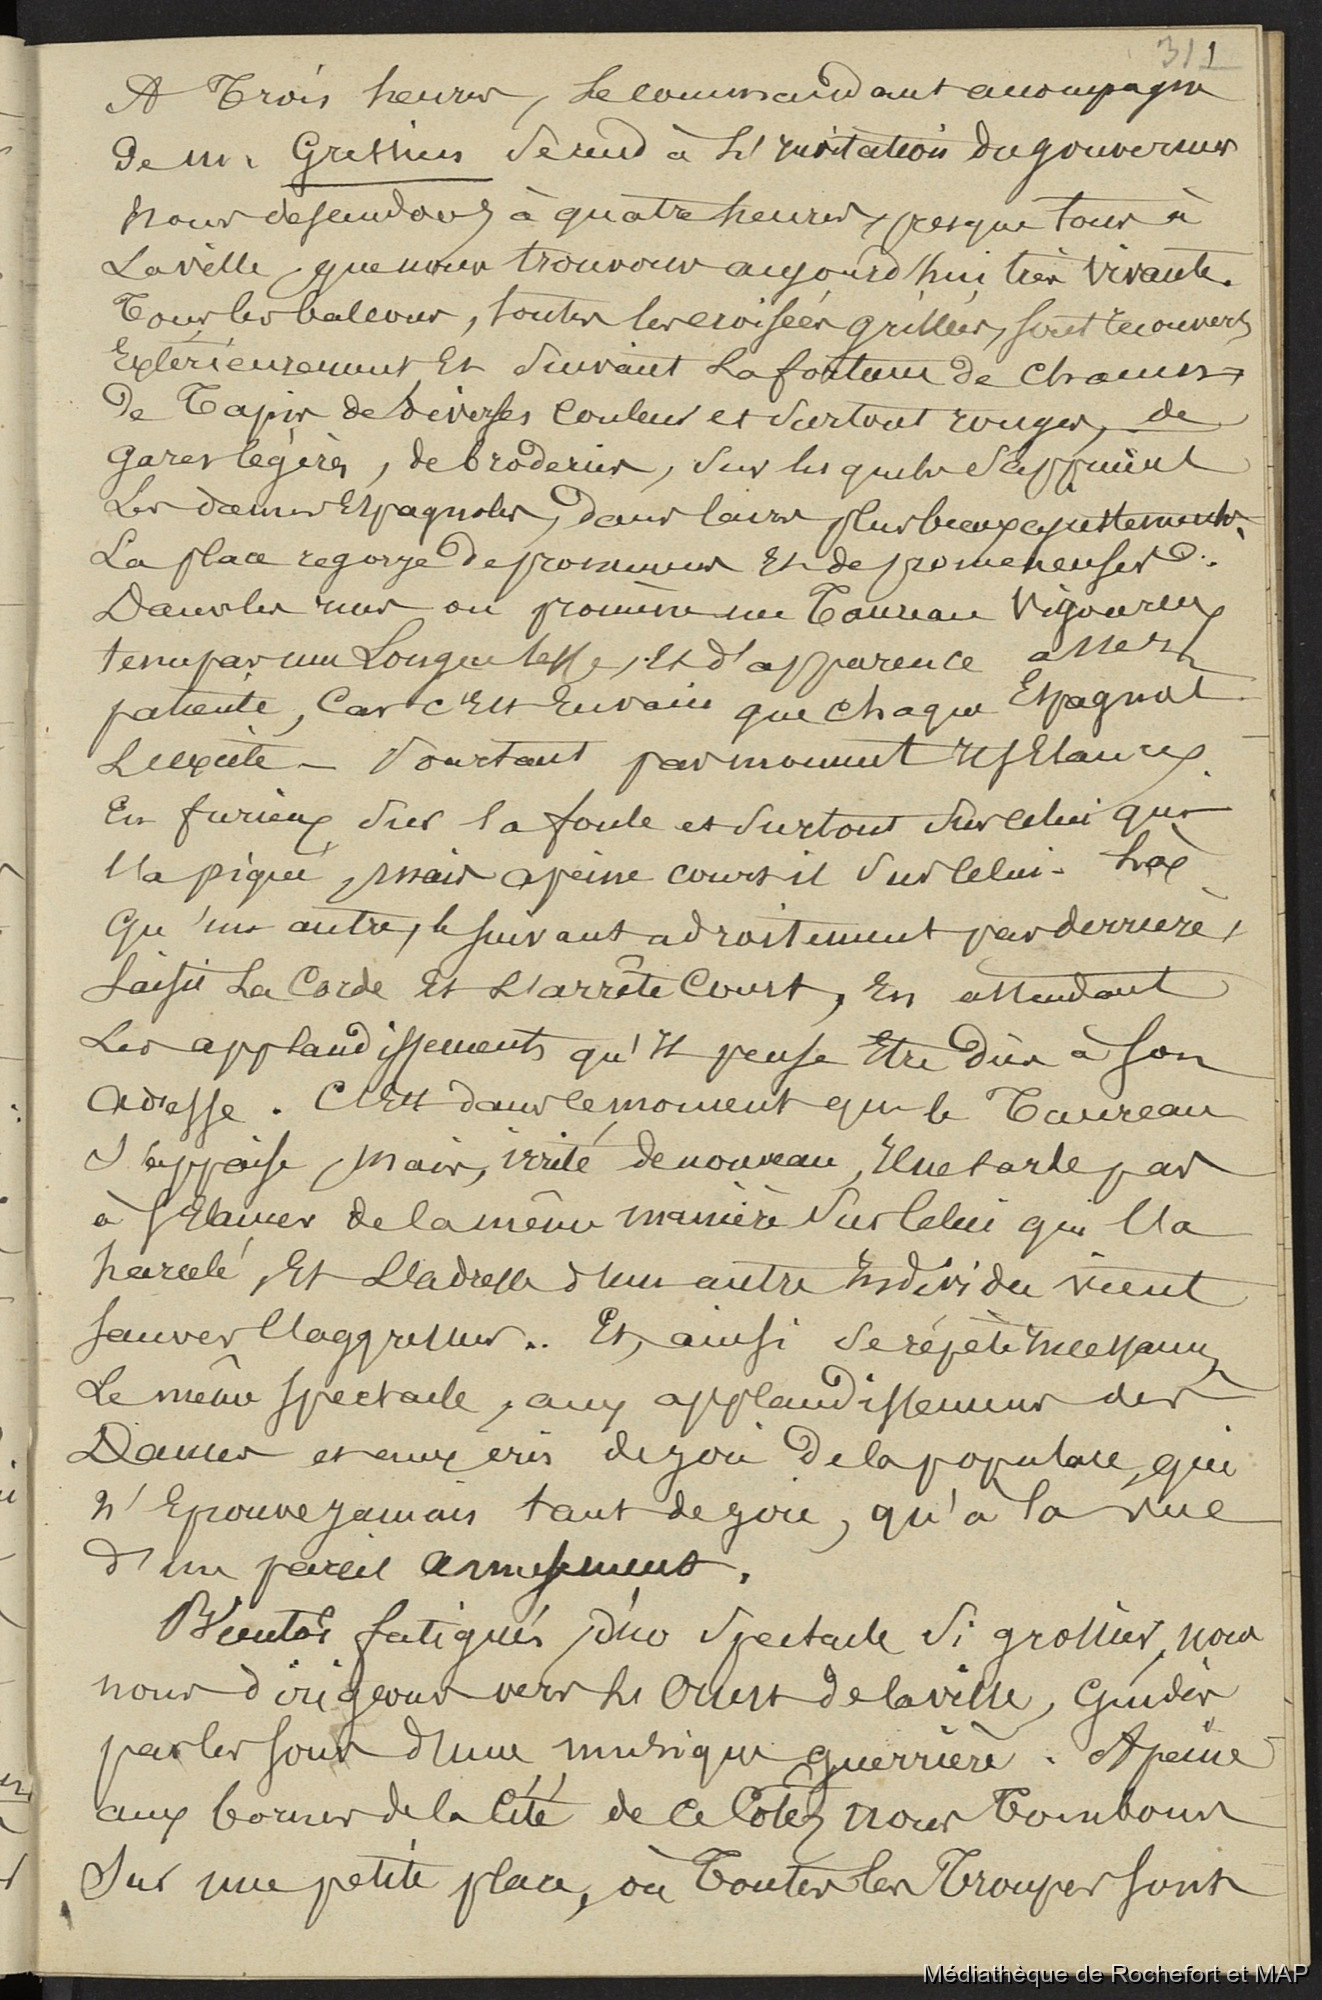 311
A Trois heures, le commandant accompagné
de Mr. Gressien se rend à l'invitation du gouverneur
nous descendons à quatre heures, presque tous à
La ville, que nous trouvons aujourd'hui très vivante.
Tous les balcons, toutes les croisées grillées, sont recouverts
Extérieurement Et suivant la fortune de chacun,
de Tapis de diverses couleurs et surtout rouges, de
gazes légères, de broderies, sur lesquelles s'appuient
Les dames Espagnoles, dans leurs plus beaux ajustements.
La place regorge de promeneurs Et de promeneuses.
Dans les rues on promène un Taureau Vigoureux
tenu par une Longue lesse, Et d'apparence assez
patiente, Car c'Est Envain que chaque Espagnol
L'excite _ Pourtant par moment Il s'Elance
En furieux sur la foule et surtout sur celui qui
l'a piqué, mais apeine court-il sur celui-là
Qu'un autre, le suivant adroitement par derrière,
saisit La Corde Et L'arrête Court, En attendant
Les applaudissements qu'Il pense Etre dûs à son
Adresse. C'Est dans ce moment que le Taureau
s'appaise, Mais, irrité de nouveau, Il ne tarde pas
à s'Elancer de la même manière sur Celui qui l'a
harcelé, Et L'adresse d'un autre Individu vient
sauver l'aggresseur.. Et, ainsi se répète Incessamt
Le même spectacle, aux applaudissements des
Dames et aux cris de joie de la populace, qui
n'Eprouve jamais tant de joie, qu'à la vue
d'un pareil Amusement.
Bientôt fatigués, d'un spectacle si grossier, nous
nous dirigeons vers l'Ouest de la ville, Guidés
par les sons d'une musique guerrière. Apeine
aux bornes de la Cité de ce Coté, nous Tombons
Sur une petite place, où Toutes les Troupes sont
Médiathèque de Rochefort et MAP